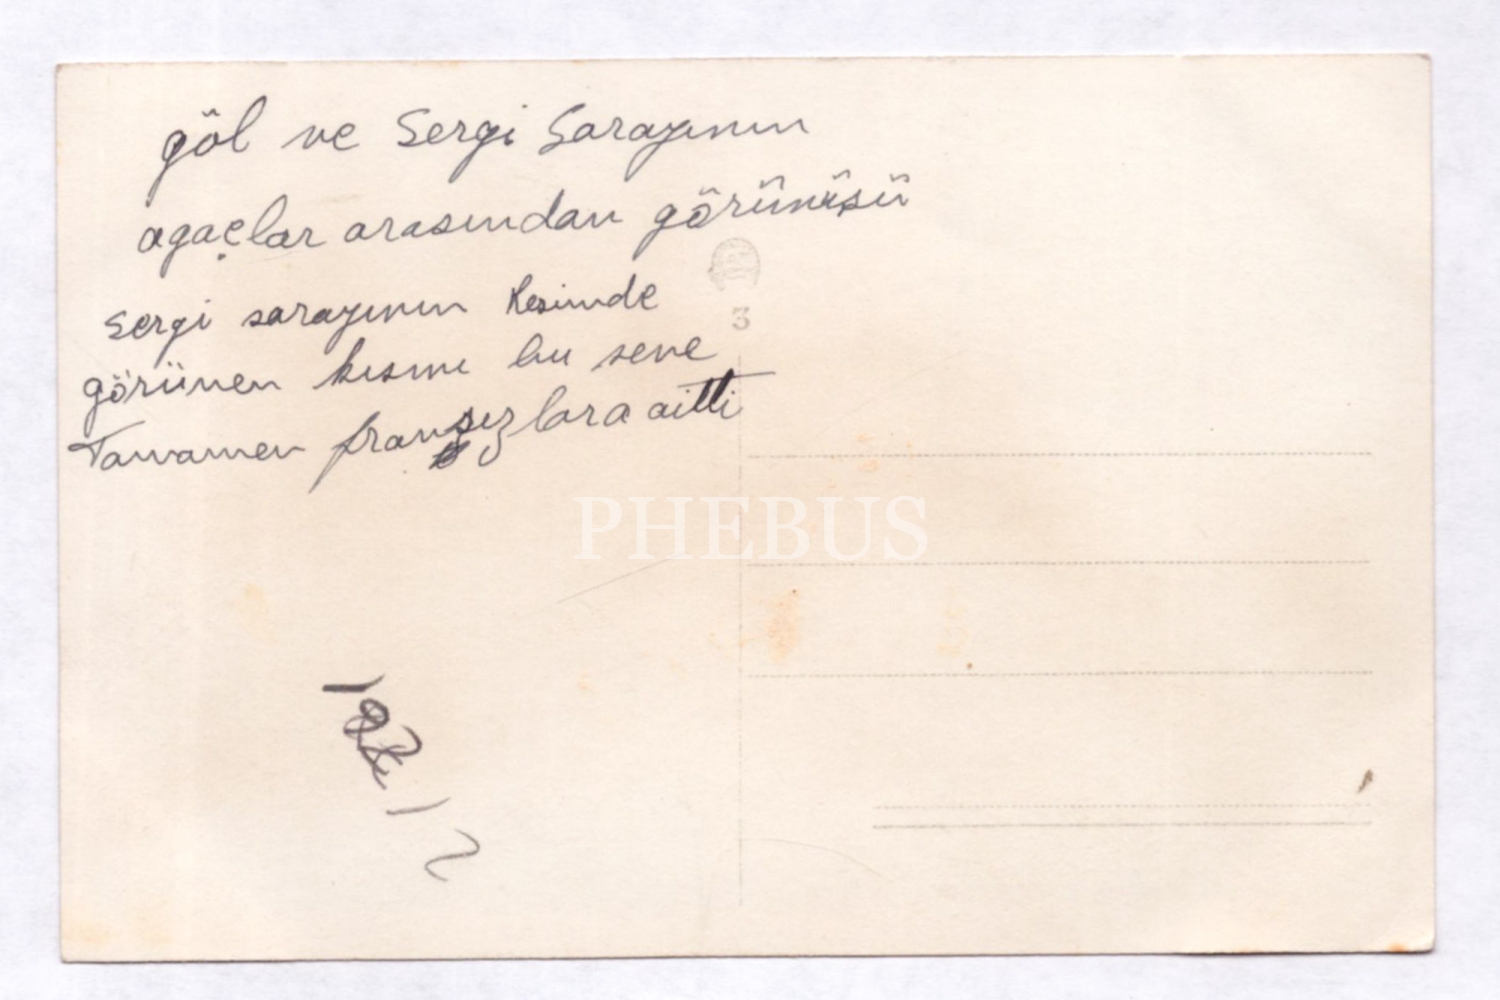 göl ve Sergi Sarayının
agaçlar arasından görünüşü
sergi sarayının Resimde
görünen kısmı bu sene
Tamamen fransızlara aitti
3
PHEBUS